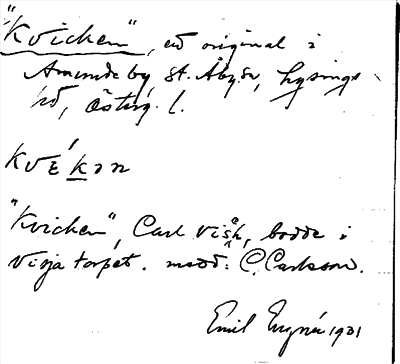 "Kvicken", ett original i
Amundeby, St. Åby sn, Lysings
hd, Östrg. l.
Kvékən
"Kvicken", Carl, bodde i
Visjatorpet. medd: C. Carlsson.
Emil 1921